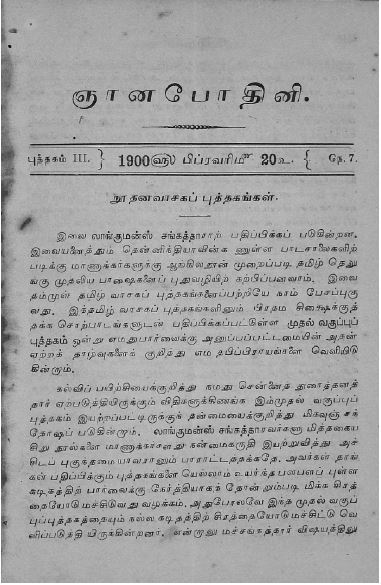 ஞானபோதினி.
புத்தகம் III. } 1900௵ பிப்ரவரி௴ 20௳. { நெ. 7.
நூதனவாசகப் புத்தகங்கள்.
இவை லாங்குமன்ஸ் சங்கத்தாராற் பதிப்பிக்கப் படுகின்றன.
இவையனைத்தும் தென்னிந்தியாவின்க ணுள்ள பாடசாலைகளிற்
படிக்கு மாணாக்கர்களுக்கு ஆங்கிலதுரை முறைப்படி தமிழ் தெலுங்
கு முதலிய பாஷைகளைப் புதுவழியிற் கற்பிப்பனவாம். இவை
தம்முள் தமிழ் வாசகப் புத்தகங்களைப்பற்றியே நாம் பேசப்புகு
வது. இத்தமிழ் வாசகப் புத்தகங்களினும் பிரதம சிக்ஷைக்குத்
தக்க சொற்பாடங்களுடன் பதிப்பிக்கப்பட்டுள்ள முதல் வகுப்புப்
புத்தகம் ஒன்று எமதுபார்வைக்கு அனுப்பப்பட்டமையின் அதன்
ஏற்றத் தாழ்வுகளைக் குறித்து எம தபிப்பிராயங்களை வெளியிடு
கின்றாம்.
கல்விப் பயிற்சியைக்குறித்து நமது சென்னைத் துரைத்தனத்
தார் ஏற்படுத்தியிருக்கும் விதிகளுக்கிணங்க இம்முதல் வகுப்புப்
புத்தகம் இயற்றப்பட்டிருக்குந் தன்மையைக்குறித்து மிகவுஞ் சந்
தோஷப் படுகின்றாம். லாங்குமன்ஸ் சங்கத்தாரவர்களு மித்தகைய
சிறு நூல்களை மாணாக்கரதுநன்மைகருதி இயற்றுவித்து அச்
சிடப் புகுந்தமை யாவரானும் பாராட்டத்தக்கதே. அவர்கள் தாங்
கள் பதிப்பிக்கும் புத்தகங்களை யெல்லாம் உயர்ந்த பளபளப் புள்ள
கடிதத்திற் பார்வைக்கு நேர்த்தியாகத் தோன் றும்படி மிக்க சிரத்
தையோடுமச்சிடுவது வழக்கம். அதுபோலவே இந்த முதல் வகுப்
புப்புத்தகத்தையும் நல்ல கடிதத்திற் சிரத்தையோடுமச்சிட்டு வெ
ளிப்படுத்தி யிருக்கின்றனர். என்றாலும் மச்சங்கத்தார் விஷயத்திலு